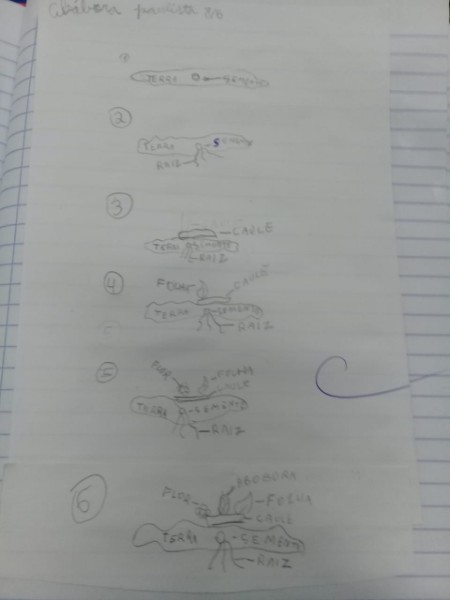 abóbora paulista
1
TERRA SEMENTE
2
TERRA SEMENTE
RAIZ
3
CAULE
TERRA SEMENTE
RAIZ
4
FOLHA CAULE
TERRA SEMENTE
RAIZ
5
FLOR FOLHA
CAULE
TERRA SEMENTE
RAIZ
6
ABOBORA
FLOR FOLHA
CAULE
TERRA SEMENTE
RAIZ